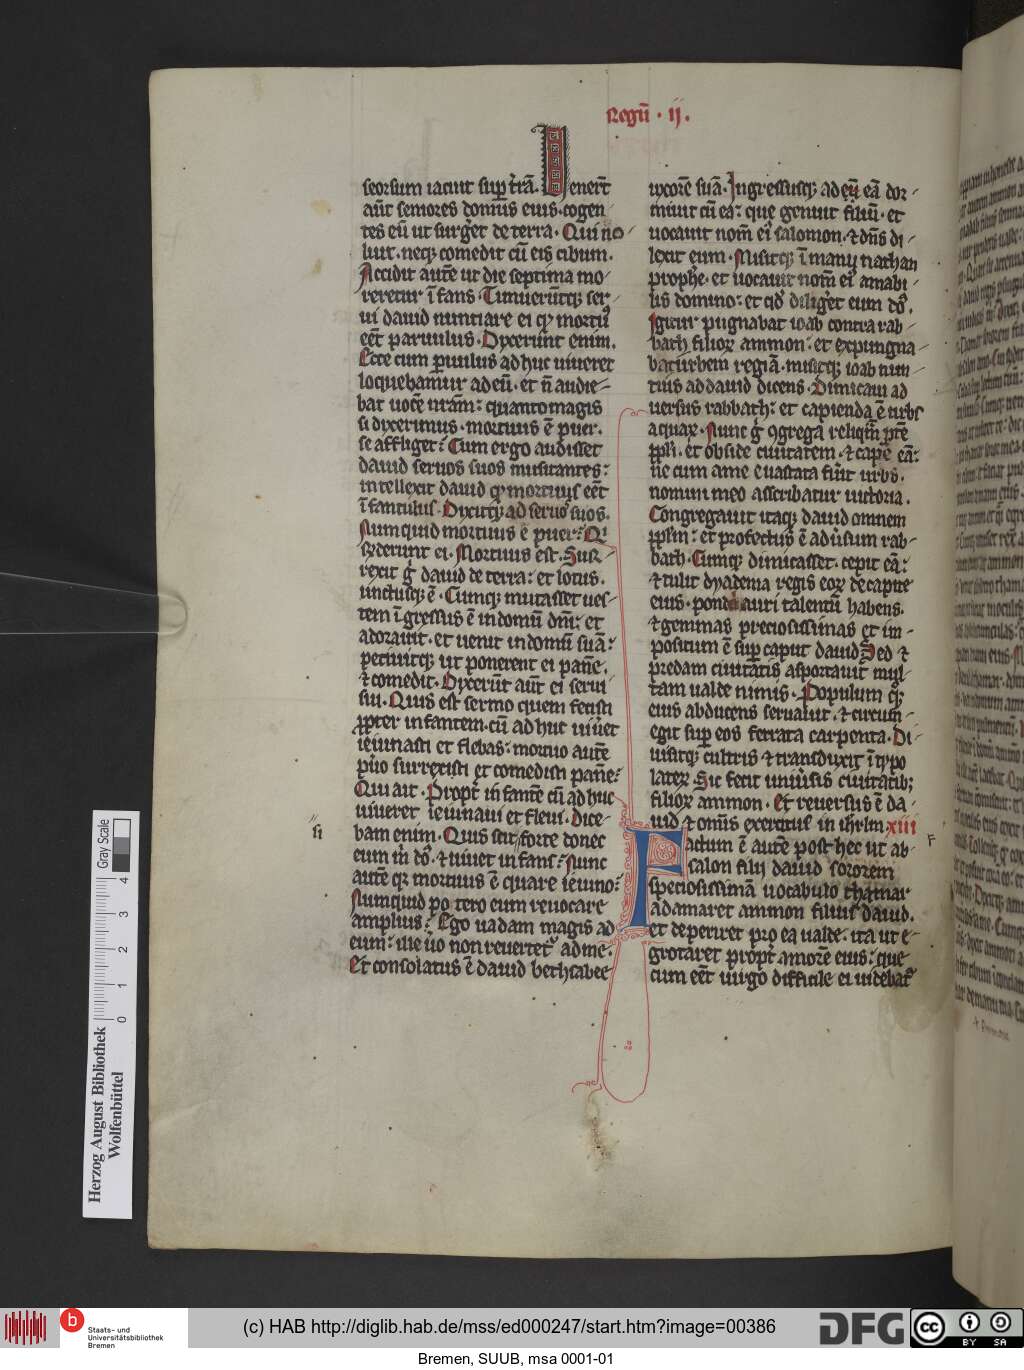 Regū · ij.
seorsum iacuit suꝑ t̄rā. Venert̄
aūt seniores domus eius. cogen
tes eū ut surg̾et de terra. Qui no
luit. neqꝫ comedit cū eis cibum.
Accidit autē ut die septima mo
reretur īfans. Timuerūtqꝫ ser
ui dauid nuntiare ei qꝫ mortuꝰ
eēt paruulus. Dyxerunt enim.
Ecce cum ꝑuulus adhuc uiueret
loquebamur ad eū. et n̄ audie
bat uocē nram̄: quanto magis
si dyxerimus. mortuus ē puer.
se affliget? Cum ergo audisset
dauid seruos suos musitantes:
intellexit dauid qꝫ mortuus eēt
īfantulus. Dyxitqꝫ ad seruos suos.
Numquid mortuus ē puer? Qi
rn̄derunt ei. Mortuus est. Sur
rexit gͥ dauid de terra: et lotus.
unctusqꝫ ē. Cumqꝫ mutasset ues
tem īgressus ē in domū dn̄i: et
adorauit. et uenit in domū suā:
petiuitqꝫ ut ponerent ei panē.
⁊ comedit. Dyxerūt aūt ei serui
sui. Quis est sermo quem fecisti
ꝓpter infantem. cū adhuc uiu̾et
ieiunasti et flebas: mortuo autē
pu̾o surrexisti et comedisti panē?
Qui ait. Propt̾ infantē cū adhuc
uiueret ieiunaui et fleui. Dice
si
bam enim. Quis scit forte donec
eum m̄ dō. ⁊ uiuet infans? Nunc
autē qꝛ mortuus ē quare ieiuno?
Numquid potero eum reuocare
amplius? Ego uadam magis ad
eum: ille u̾o non reuertetꝰ ad me.
Et consolatus ē dauid bethsabee
uxorē suā. Ingressusqꝫ ad eū eā dor
miuit cū ea: que genuit filiū. et
uocauit nom̄ eiꝰ salomon. ⁊ dn̄s di
lexit eum. Misitqꝫ ī manu nathan
prophe. et uocauit nom̄ eiꝰ amabi
lis domino: et qd̾ diliget eum dō.
Igitur pugnabat ioab contra rab
bath filioꝝ ammon: et expungna
bat urbem regiā. misitqꝫ ioab nun
tius ad dauid dicens. Dimicaui ad
uersus rabbath: et capienda ē urbs
aquaꝝ. Nunc gͥ ꝯgrega reliqm̄ ptē
ppl̄i. et obside ciuitatem. ⁊ cape eā:
ne cum a me euastata fuit̾ urbs.
nomini meo asscribatur uictoria.
Congregauit itaqꝫ dauid omnem
ppl̄m: et profectus ē adu̾sum rab
bath. Cumqꝫ dimicasset. cepit eā:
⁊ tulit dyadema regis eoꝝ de capite
eius. pondo auri talentū habens.
⁊ gemmas preciosissimas et im
positum ē suꝑ caput dauid Sed ⁊
predam ciuitatis asportauit mul
tam ualde nimis. Populum qꝫ
eius abducens serauit. ⁊ circum
egit suꝑ eos ferrata carpenta. Di
uisitqꝫ cultris ⁊ transduxit ī typo
lateꝝ Sic fecit uniu̾sis ciuitatibꝫ
filioꝝ ammon. Et reuersus ē da
uid ⁊ omīs exercitus in ihrlm xiii
Factum ē autē post hec ut ab
salon filij dauid sororem
speciosissimā uocabulo thamar
adamaret ammon filius dauid.
et deperiret pro ea ualde. ita ut e
grotaret propt̾ amorē eius: que
cum eēt uirgo difficile ei uidebatᷣ
Herzog August Bibliothek
Wolfenbüttel
0 1 2 3 4
Gray Scale
b
Staats- und
Universitätsbibliothek
Bremen
(c) HAB http://diglib.hab.de/mss/ed000247/start.htm?image=00386
DFG
cc
BY SA
Bremen, SUUB, msa 0001-01